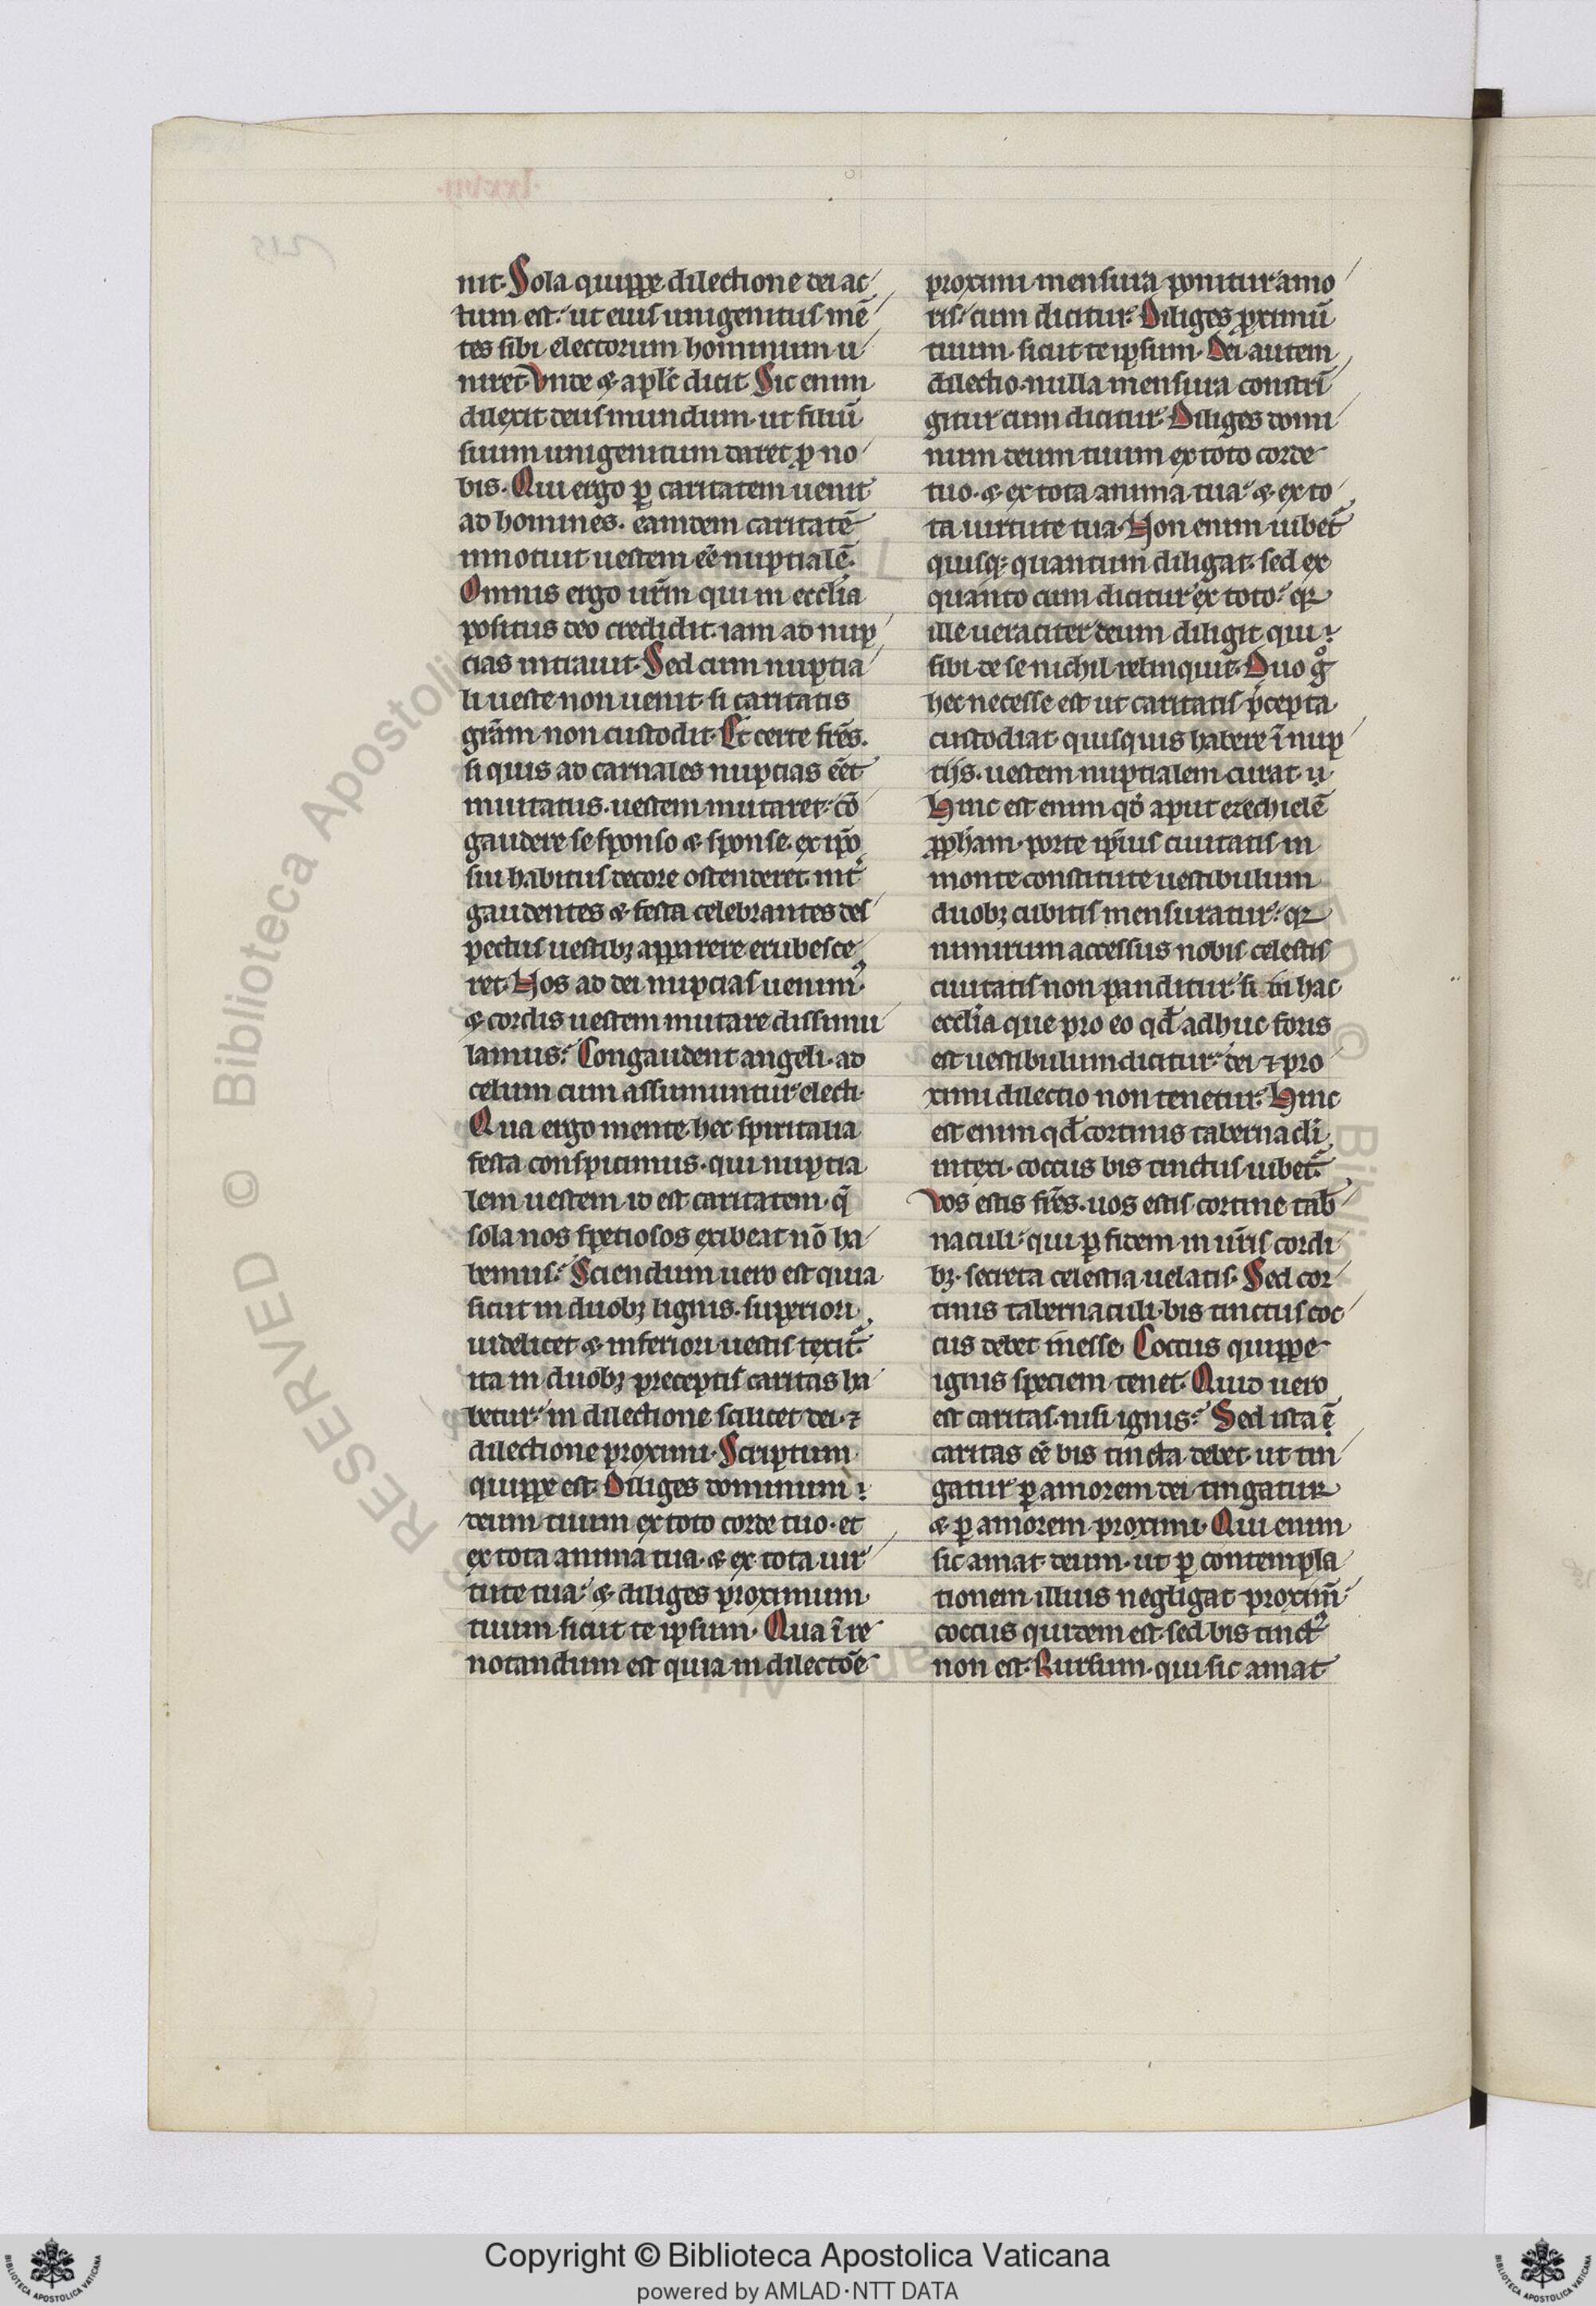 nit. Sola quippe dilectione dei ac
tum est. ut eius unigenitus mē
tes sibi electorum hominum u
niret. Vnde & aplc̄ dicit Sic enim
dilexit deus mundum. ut filiū
suum unigenitum daret ꝓ no
bis. Qui ergo ꝑ caritatem uenit
ad homines. eamdem caritatē
innotuit uestem eē nuptialē.
Omnis ergo ur̄m qui in ecclīa
positus deo credidit. iam ad nup
cias intrauit. Sed cum nuptia
li ueste non uenit. si caritatis
grām non custodit. Et certe frēs.
si quis ad carnales nuptias eēt
inuitatus. uestem mutaret. cō
gaudere se sponso & sponse. ex ipō
sui habitus decore ostenderet. int̄
gaudentes & festa celebrantes des
pectus uestibꝫ apparere erubesce
ret. Nos ad dei nuptias uenimꝰ.
& cordis uestem mutare dissimu
lamus. Congaudent angeli. ad
celum cum assumuntur electi.
Qua ergo mente hec spiritalia
festa conspicimus. qui nuptia
lem uestem id est caritatem. q̄
sola nos spetiosos exibeat nō ha
bemus. Sciendum uero est quia
sicut in duobꝫ lignis. superiori
uidelicet & inferiori uestis texit᷑.
ita in duobꝫ preceptis caritas ha
betur. in dilectione scilicet dei. ⁊
dilectione proximi. Scriptum
quippe est. Diliges dominum
deum tuum ex toto corde tuo. et
ex tota anima tua. & ex tota uir
tute tua. & diliges proximum
tuum sicut te ipsum. Qua ī re
notandum est quia in dilectōe
proximi mensura ponitur amo
ris. cum dicitur. Diliges ꝓximū
tuum. sicut te ipsum. Dei autem
dilectio. nulla mensura constrī
gitur cum dicitur. Diliges domi
num deum tuum ex toto corde
tuo. & ex tota anima tua. & ex to
ta uirtute tua. Non enim iubet᷑
quisqꝫ quantum diligat. sed ex
quanto cum dicitur ex toto. qꝛ
ille ueraciter deum diligit qui
sibi de se nichil relinquit. Duo gͦ
hec necesse est ut caritatis p̄cepta
custodiat. quisquis habere ī nup
tijs. uestem nuptialem curat.
Hinc est enim qd̄ aput ezechielē
ꝓpham. porte ipīus ciuitatis in
monte constitute uestibulum
duobꝫ cubitis mensuratur. qꝛ
nimirum accessus nobis celestis
ciuitatis non panditur. si in hac
ecclīa que pro eo qd̄ adhuc foris
est uestibulum dicitur. dei ⁊ pro
ximi dilectio non tenetur. Hinc
est enim qd̄ cortinis tabernacli
intexi. coccus bis tinctus iubet᷑.
Vos estis frēs. uos estis cortine tab̄
naculi. qui ꝑ fidem in ur̄is cordi
bꝫ. secreta celestia uelatis. Sed cor
tinis tabernaculi. bis tinctus coc
cus debet inesse. Coccus quippe
ignis speciem tenet. Quid uero
est caritas. nisi ignis. Sed ista ē
caritas eē bis tincta debet. ut tin
gatur ꝑ amorem dei. tingatur
& ꝑ amorem proximi. Qui enim
sic amat deum. ut ꝑ contempla
tionem illius negligat proximū.
coccus quidem est. sed bis tinctꝰ
non est. Rursum. qui sic amat
Copyright © Biblioteca Apostolica Vaticana
powered by AMLAD·NTT DATA